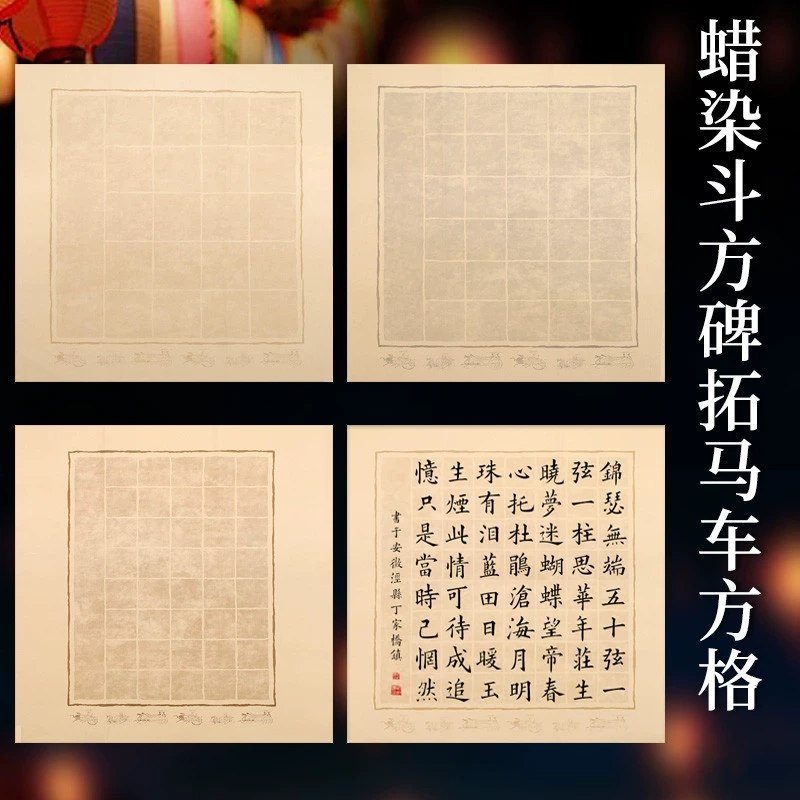 蜡染斗方碑拓马车方格
錦瑟無端五十弦一
弦一柱思華年莊生
曉夢迷蝴蝶望帝春
心托杜鵑滄海月明
珠有泪藍田日暖玉
生煙此情可待成追
憶只是當時已惘然
書于安徽涇縣丁家橋鎮